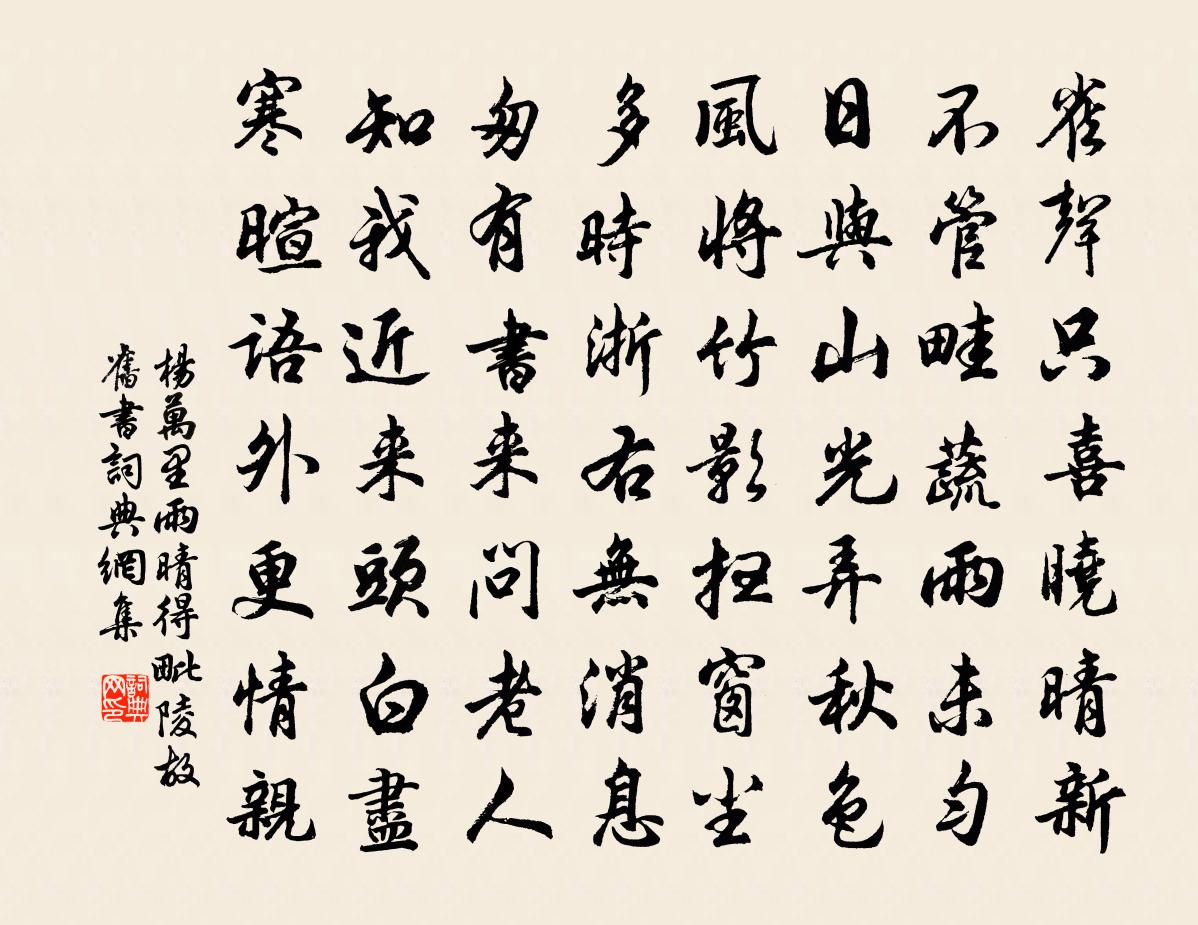 雀聲只喜曉晴新
不管畦蔬雨未勻
日與山光弄秋色
風將竹影掃窗塵
多時浙右無消息
匆有書来問老人
知我近来頭白盡
寒暄語外更情親
楊萬里雨晴得毗陵故
舊書詞典網集
詞典网印